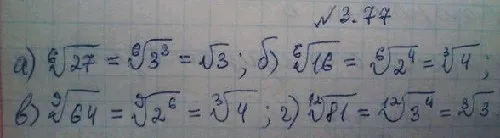 № 3.77
а) ⁶√27 = ⁶√3³ = √3; б) ⁶√16 = ⁶√2⁴ = ³√4;
в) ⁹√64 = ⁹√2⁶ = ³√4; г) ¹²√81 = ¹²√3⁴ = ³√3